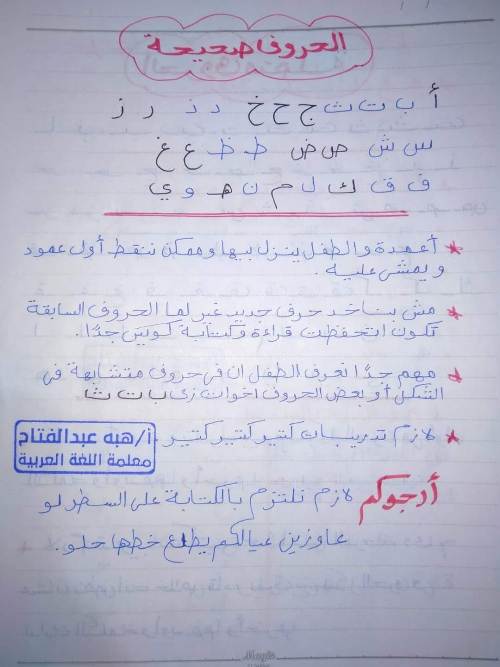 الحروف صحيحة
أ ب ت ث ج ح خ د ذ ر ز
س ش ص ض ط ظ ع غ
ف ق ك ل م ن هـ و ي
* أعمدة والطفل ينزل بيها وممكن ننقط أول عمود
و يمشى عليه .
* مش بناخد حرف جديد غير لما الحروف السابقة
تكون اتحفظت قراءة وكتابة كويس جدًا.
* مهم جدًا نعرف الطفل ان فى حروف متشابهة فى
الشكل أو بعض الحروف اخوات زى ب ت ث
* لازم تدريبات كتير كتير كتير .
أ/ هبه عبدالفتاح
معلمة اللغة العربية
أرجوكم لازم نلتزم بالكتابة على السطر لو
عاوزين عيالكم يطلع خطها حلو.